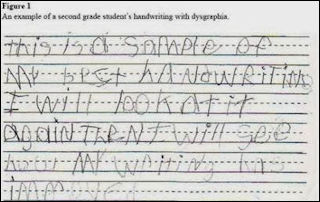 Figure 1
An example of a second grade student's handwriting with dysgraphia.
this is a Sample of
My best haNdwRiTiNg
I will look at it
agaiN TheN I will see
how My wRiTiNg has
impRoved